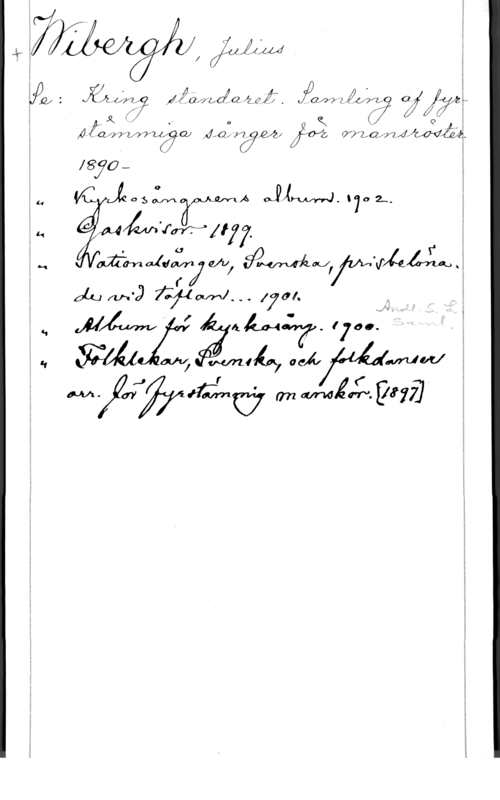 + Wibergh, Julius
Se: Kring standaret. Samling af fyr-
stämmiga sånger för mansröster
1890-
" Kyrkosångarens album. 1902.
" Gaskvisor 1899.
" Nationalsånger, Svenska, prisbelöna-
de vid täflan... 1901.
Andl. S. L.
Saml.
" Album för kyrkosång. 1900.
" Folklekar, Svenska, och folkdanser
arr. för fyrstämmig manskör. [1897]